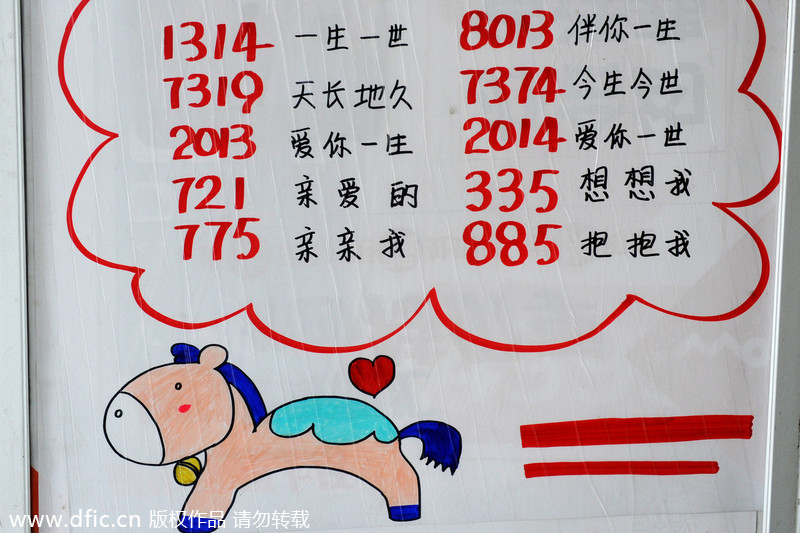 1314 一生一世 8013 伴你一生
7319 天长地久 7374 今生今世
2013 爱你一生 2014 爱你一世
721 亲爱的 335 想想我
775 亲亲我 885 抱抱我
www.dfic.cn 版权作品 请勿转载